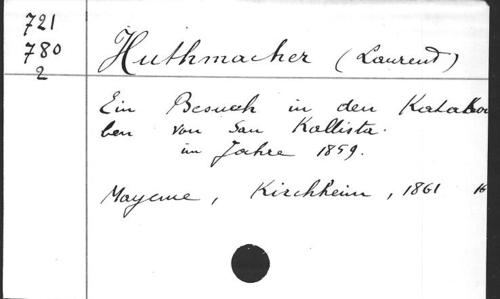 721
780
2
Huthmacher (Laurend)
Ein Besuch in den Katakom
ben von San Kallista.
im Jahre 1859.
Mayence, Kirchheim, 1861 16